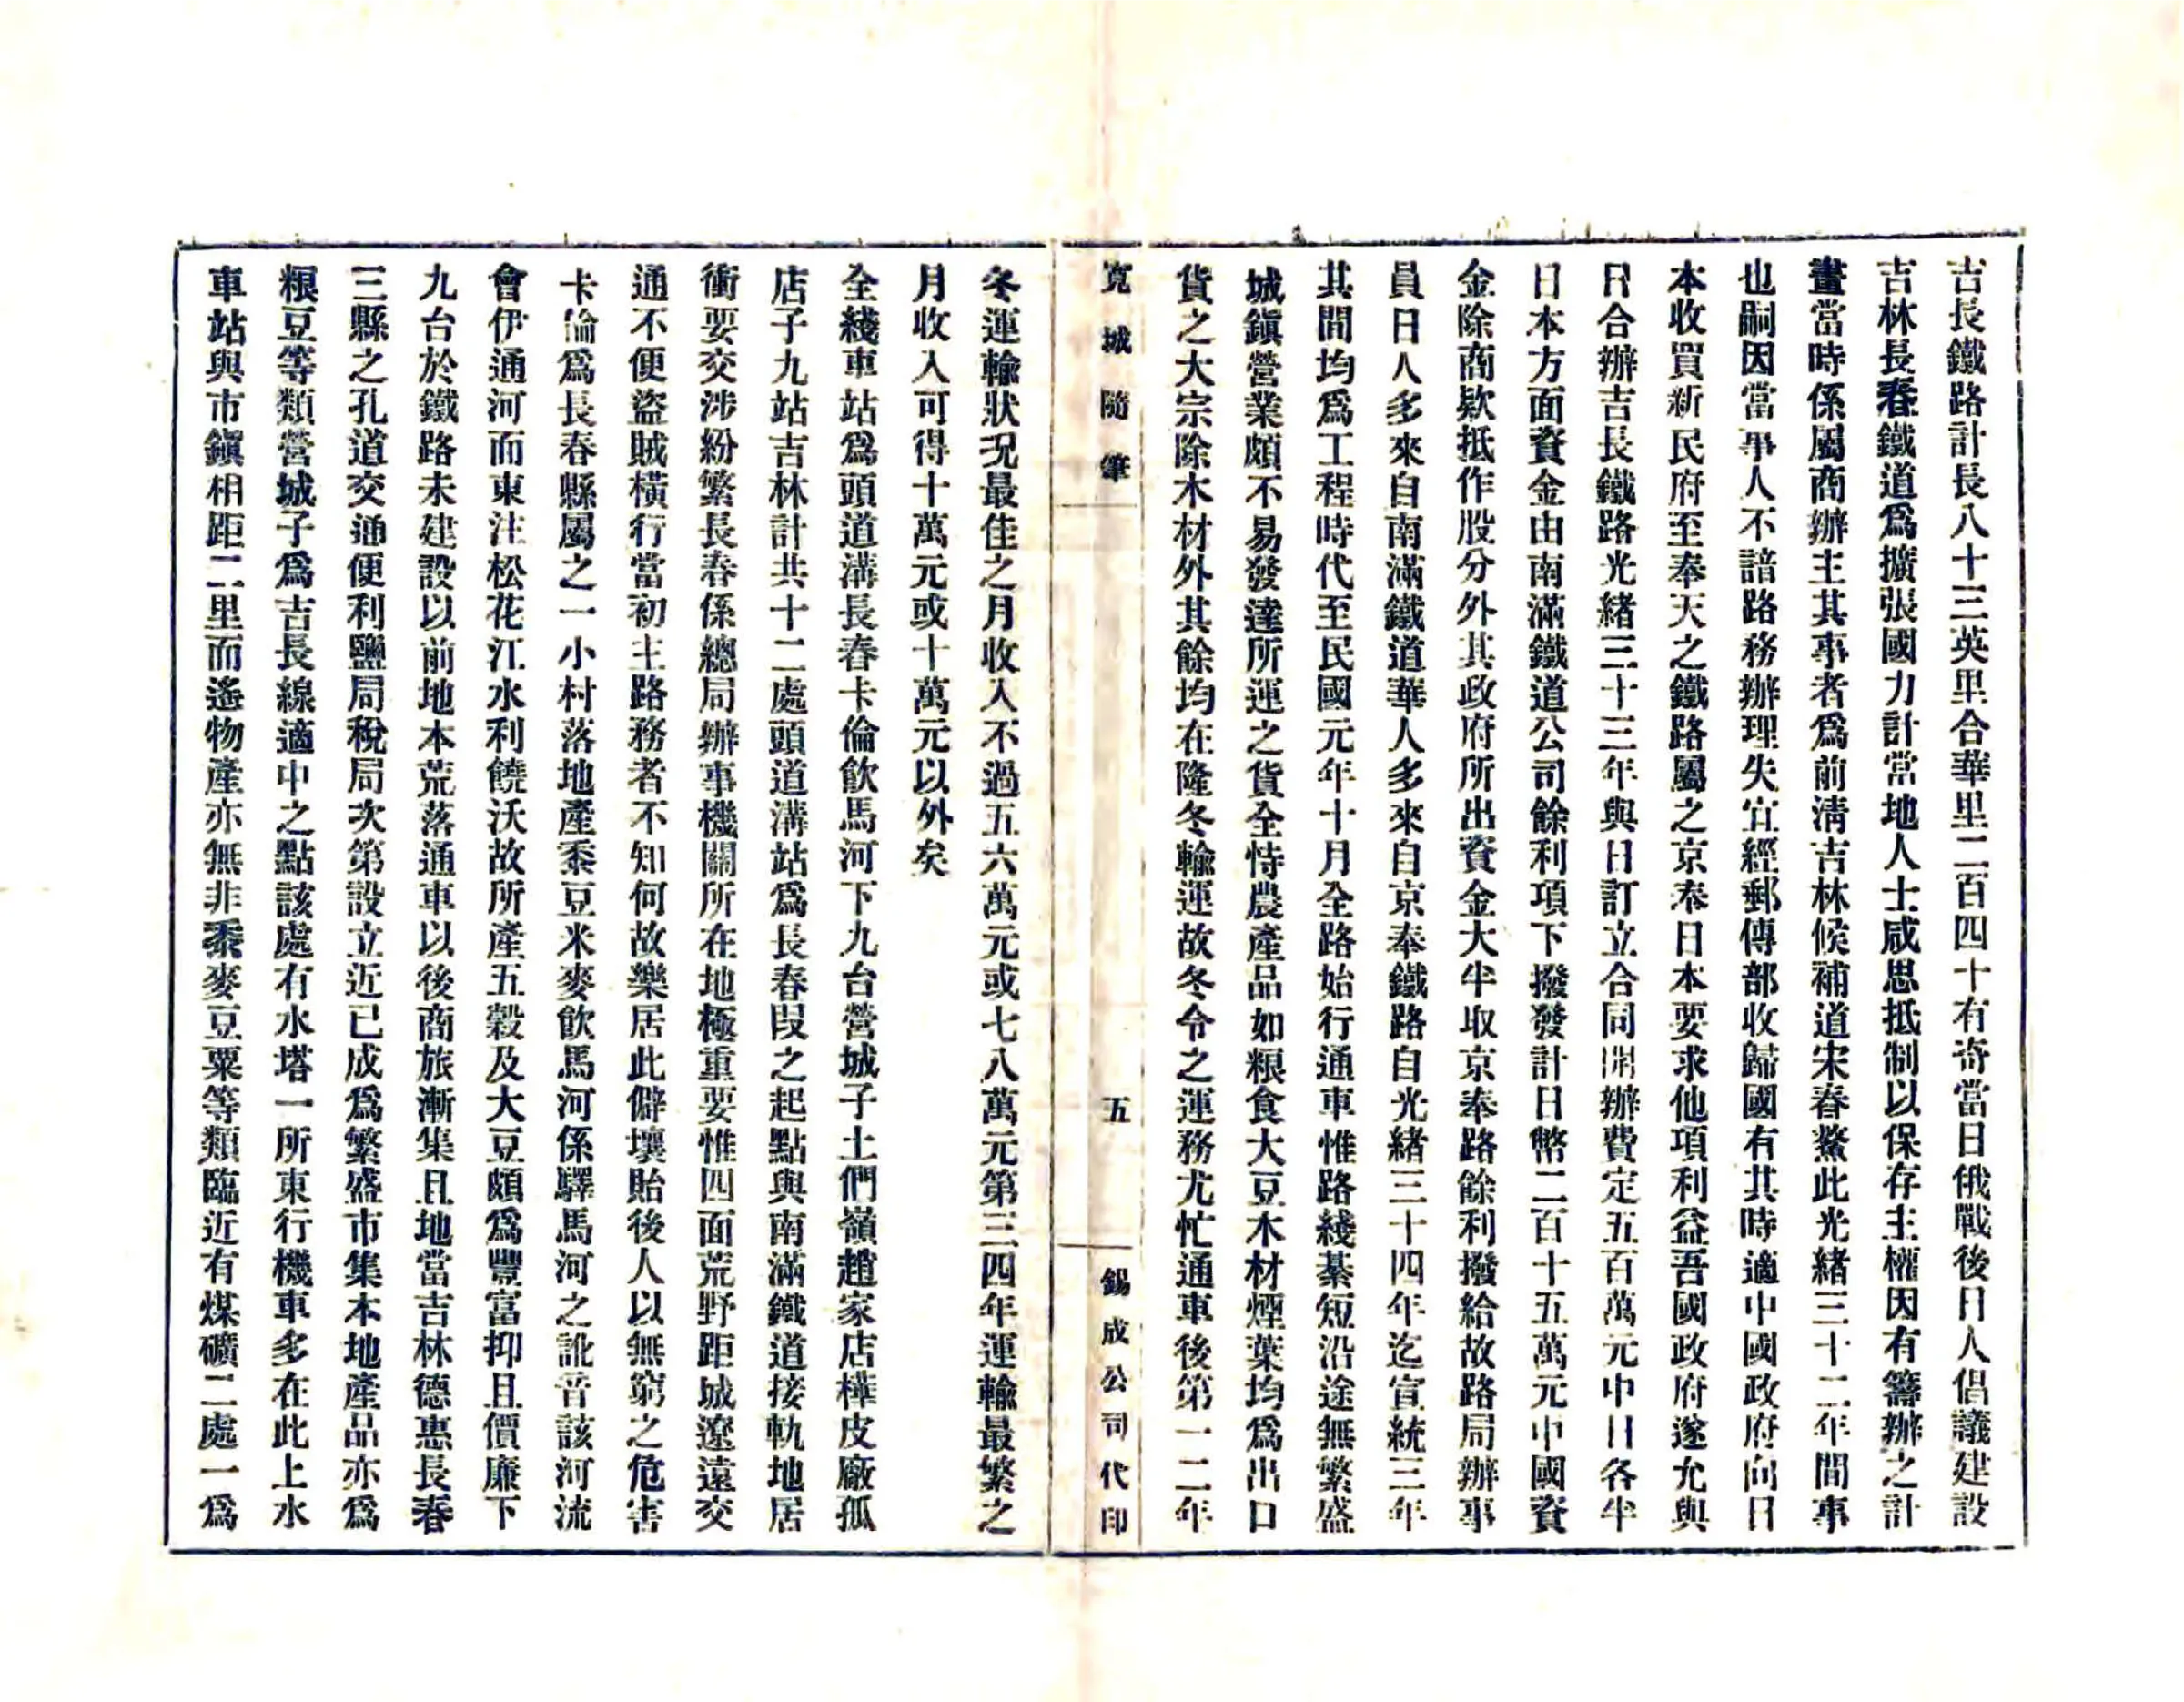 吉長鐵路計長八十三英里合華里二百四十有奇當日俄戰後日人倡議建設
吉林長春鐵道爲擴張國力計當地人士咸思抵制以保存主權因有籌辦之計
畫當時係屬商辦主其事者爲前淸吉林候補道宋春鰲此光緒三十二年間事
也嗣因當事人不諳路務辦理失宜經郵傳部收歸國有其時適中國政府向日
本收買新民府至奉天之鐵路屬之京奉日本要求他項利益吾國政府遂允與
日合辦吉長鐵路光緒三十三年與日訂立合同開辦費定五百萬元中日各半
日本方面資金由南滿鐵道公司餘利項下撥發計日幣二百十五萬元中國資
金除商欵抵作股分外其政府所出資金大半取京奉路餘利撥給故路局辦事
員日人多來自南滿鐵道華人多來自京奉鐵路自光緒三十四年迄宣統三年
其間均爲工程時代至民國元年十月全路始行通車惟路綫綦短沿途無繁盛
城鎭營業頗不易發達所運之貨全恃農產品如粮食大豆木材煙葉均爲出口
貨之大宗除木材外其餘均在隆冬輸運故冬令之運務尤忙通車後第一二年
寬城隨筆
五
錫成公司代印
冬運輸狀况最佳之月收入不過五六萬元或七八萬元第三四年運輸最繁之
月收入可得十萬元或十萬元以外矣
全綫車站爲頭道溝長春卡倫飮馬河下九台營城子土們嶺趙家店樺皮廠孤
店子九站吉林計共十二處頭道溝站爲長春段之起點與南滿鐵道接軌地居
衝要交涉紛繁長春係總局辦事機關所在地極重要惟四面荒野距城遼遠交
通不便盜賊橫行當初主路務者不知何故樂居此僻壤貽後人以無窮之危害
卡倫爲長春縣屬之一小村落地產黍豆米麥飮馬河係驛馬河之訛音該河流
會伊通河而東注松花江水利饒沃故所產五穀及大豆頗爲豐富抑且價廉下
九台於鐵路未建設以前地本荒落通車以後商旅漸集且地當吉林德惠長春
三縣之孔道交通便利鹽局稅局次第設立近已成爲繁盛市集本地產品亦爲
粮豆等類營城子爲吉長線適中之點該處有水塔一所東行機車多在此上水
車站與市鎭相距二里而遙物產亦無非黍麥豆粟等類臨近有煤礦二處一爲